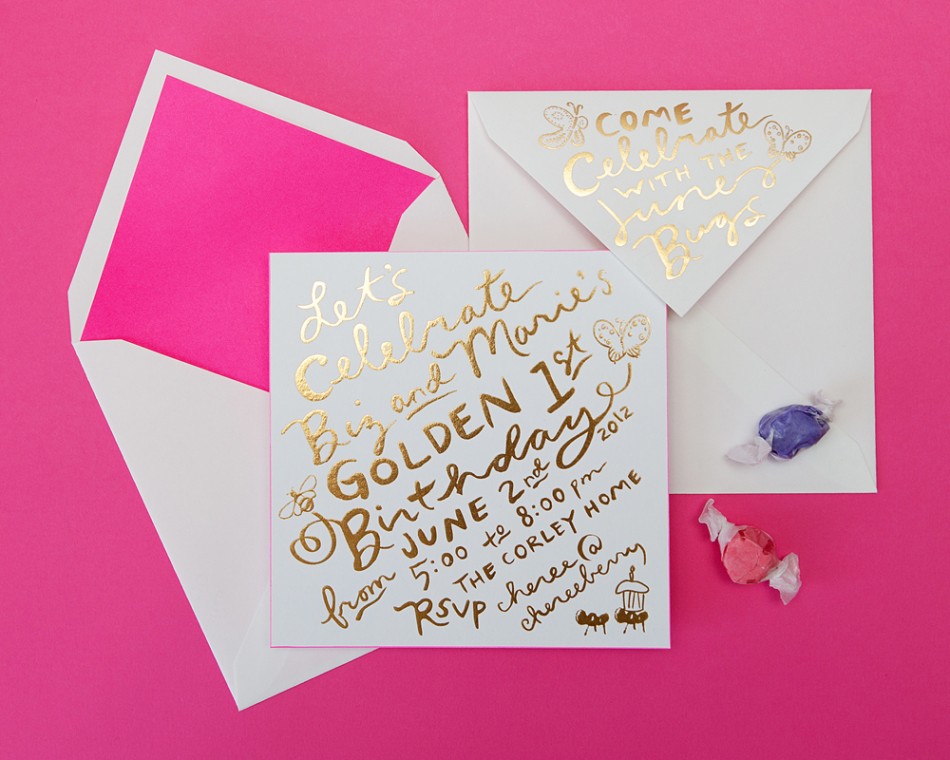 COME
Celebrate
WITH THE
June
Bugs
Let's
Celebrate
Biz and Marie's
GOLDEN 1st
Birthday
2012
JUNE 2nd
from 5:00 to 8:00 pm
THE CORLEY HOME
RSVP cheree@
chereeberry